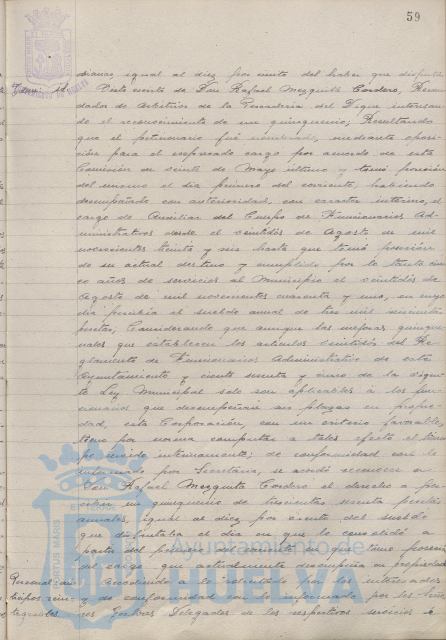 59
diarias igual al diez por ciento del haber que disfruta
Idem. id. Visto escrito de Don Rafael Mezquita Cordero, Recau
dador de Arbitrios de la Pescadería del Dique interesan
do el reconocimiento de un quinquenio; Resultando
que el peticionario fué nombrado, mediante oposi
ción para el expresado cargo por acuerdo de esta
Comisión de veinte de Mayo último y tomó posesión
del mismo el día primero del corriente, habiendo
desempeñado con anterioridad, con caracter interino, el
cargo de Auxiliar del Cuerpo de Funcionarios Ad-
ministrativos desde el veintidós de Agosto de mil
novecientos treinta y seis hasta que tomó posesión
de su actual destino y cumplido por lo tanto cin
co años de servicios al Municipio el veintidós de
Agosto de mil novecientos cuarenta y uno, en cuyo
día percibía el sueldo anual de tres mil seiscientas
pesetas; Considerando que aunque las mejoras quinque
nales que establecen los artículos veintidós del Re
glamento de Funcionarios Administrativos de este
Ayuntamiento y ciento sesenta y cinco de la vigen
te Ley Municipal solo son aplicables a los fun
cionarios que desempeñan sus plazas en propie
dad, esta Corporación, con un criterio favorable,
tiene por norma computar a tales efectos el tiem
po servido interinamente; de conformidad con lo
informado por Secretaría, se acordó reconocer a
Don Rafael Mezquita Cordero el derecho a per
cibir un quinquenio de trescientas sesenta pesetas
anuales, igual al diez por ciento del sueldo
que disfrutaba el día en que lo consolidó a
partir del primero del corriente en que tomó posesión
del cargo que actualmente desempeña en propiedad
Accediendo a lo solicitado por los interesados
y de conformidad con lo informado por los Seño
res Gestores Delegados de los respectivos servicios é
Ayuntamiento de
HUELVA